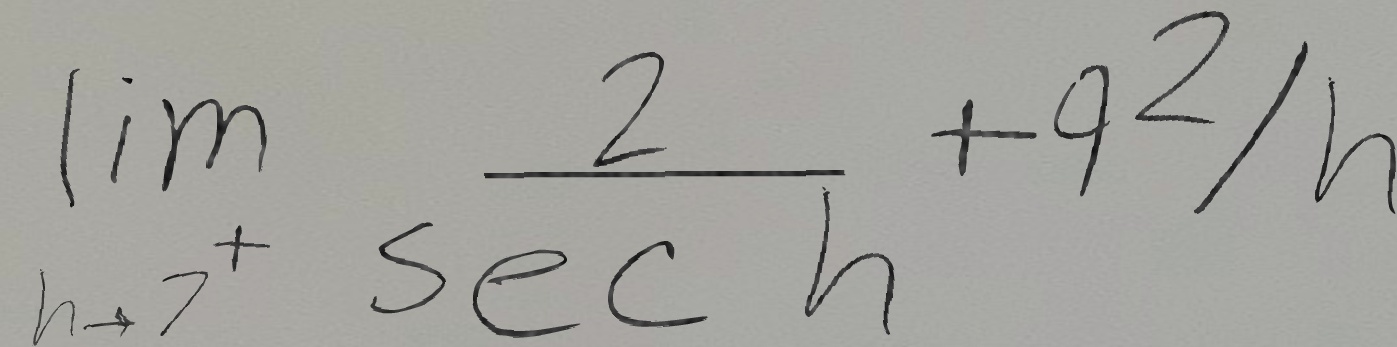 \lim_{h \to 7^+} \frac{2}{\sec h} + 9^2/h